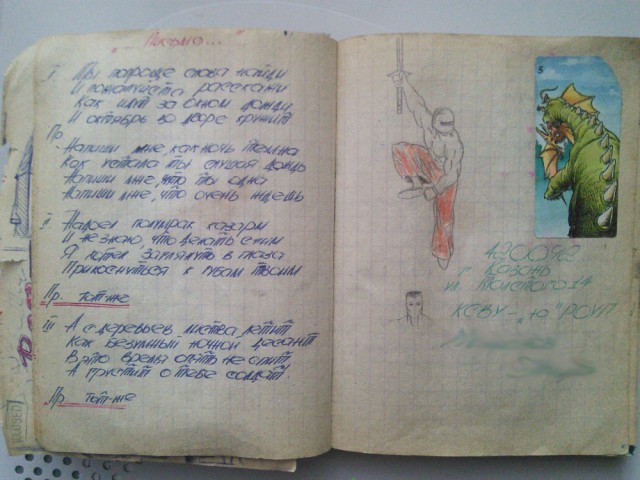 Письмо...
I Ты попроще слова найди
И пожалуйста расскажи
Как идут за окном дожди
И октябрь во дворе кружит
Пр.
Напиши мне, как ночь темна
Как устала ты слушая дождь
Напиши мне, что ты одна
Напиши мне, что очень ждешь
II Надоел полумрак казарм
И не знаю, что делать с ним
Я хотел заглянуть в глаза
Прикоснуться к губам твоим
Пр тот-же
III А с деревьев листва летит
Как безумный ночной десант
В это время опять не спит
А грустит о тебе солдат!
Пр тот-же
5
г Казань
ул. Толстого 14
КСВУ - "РОУП"